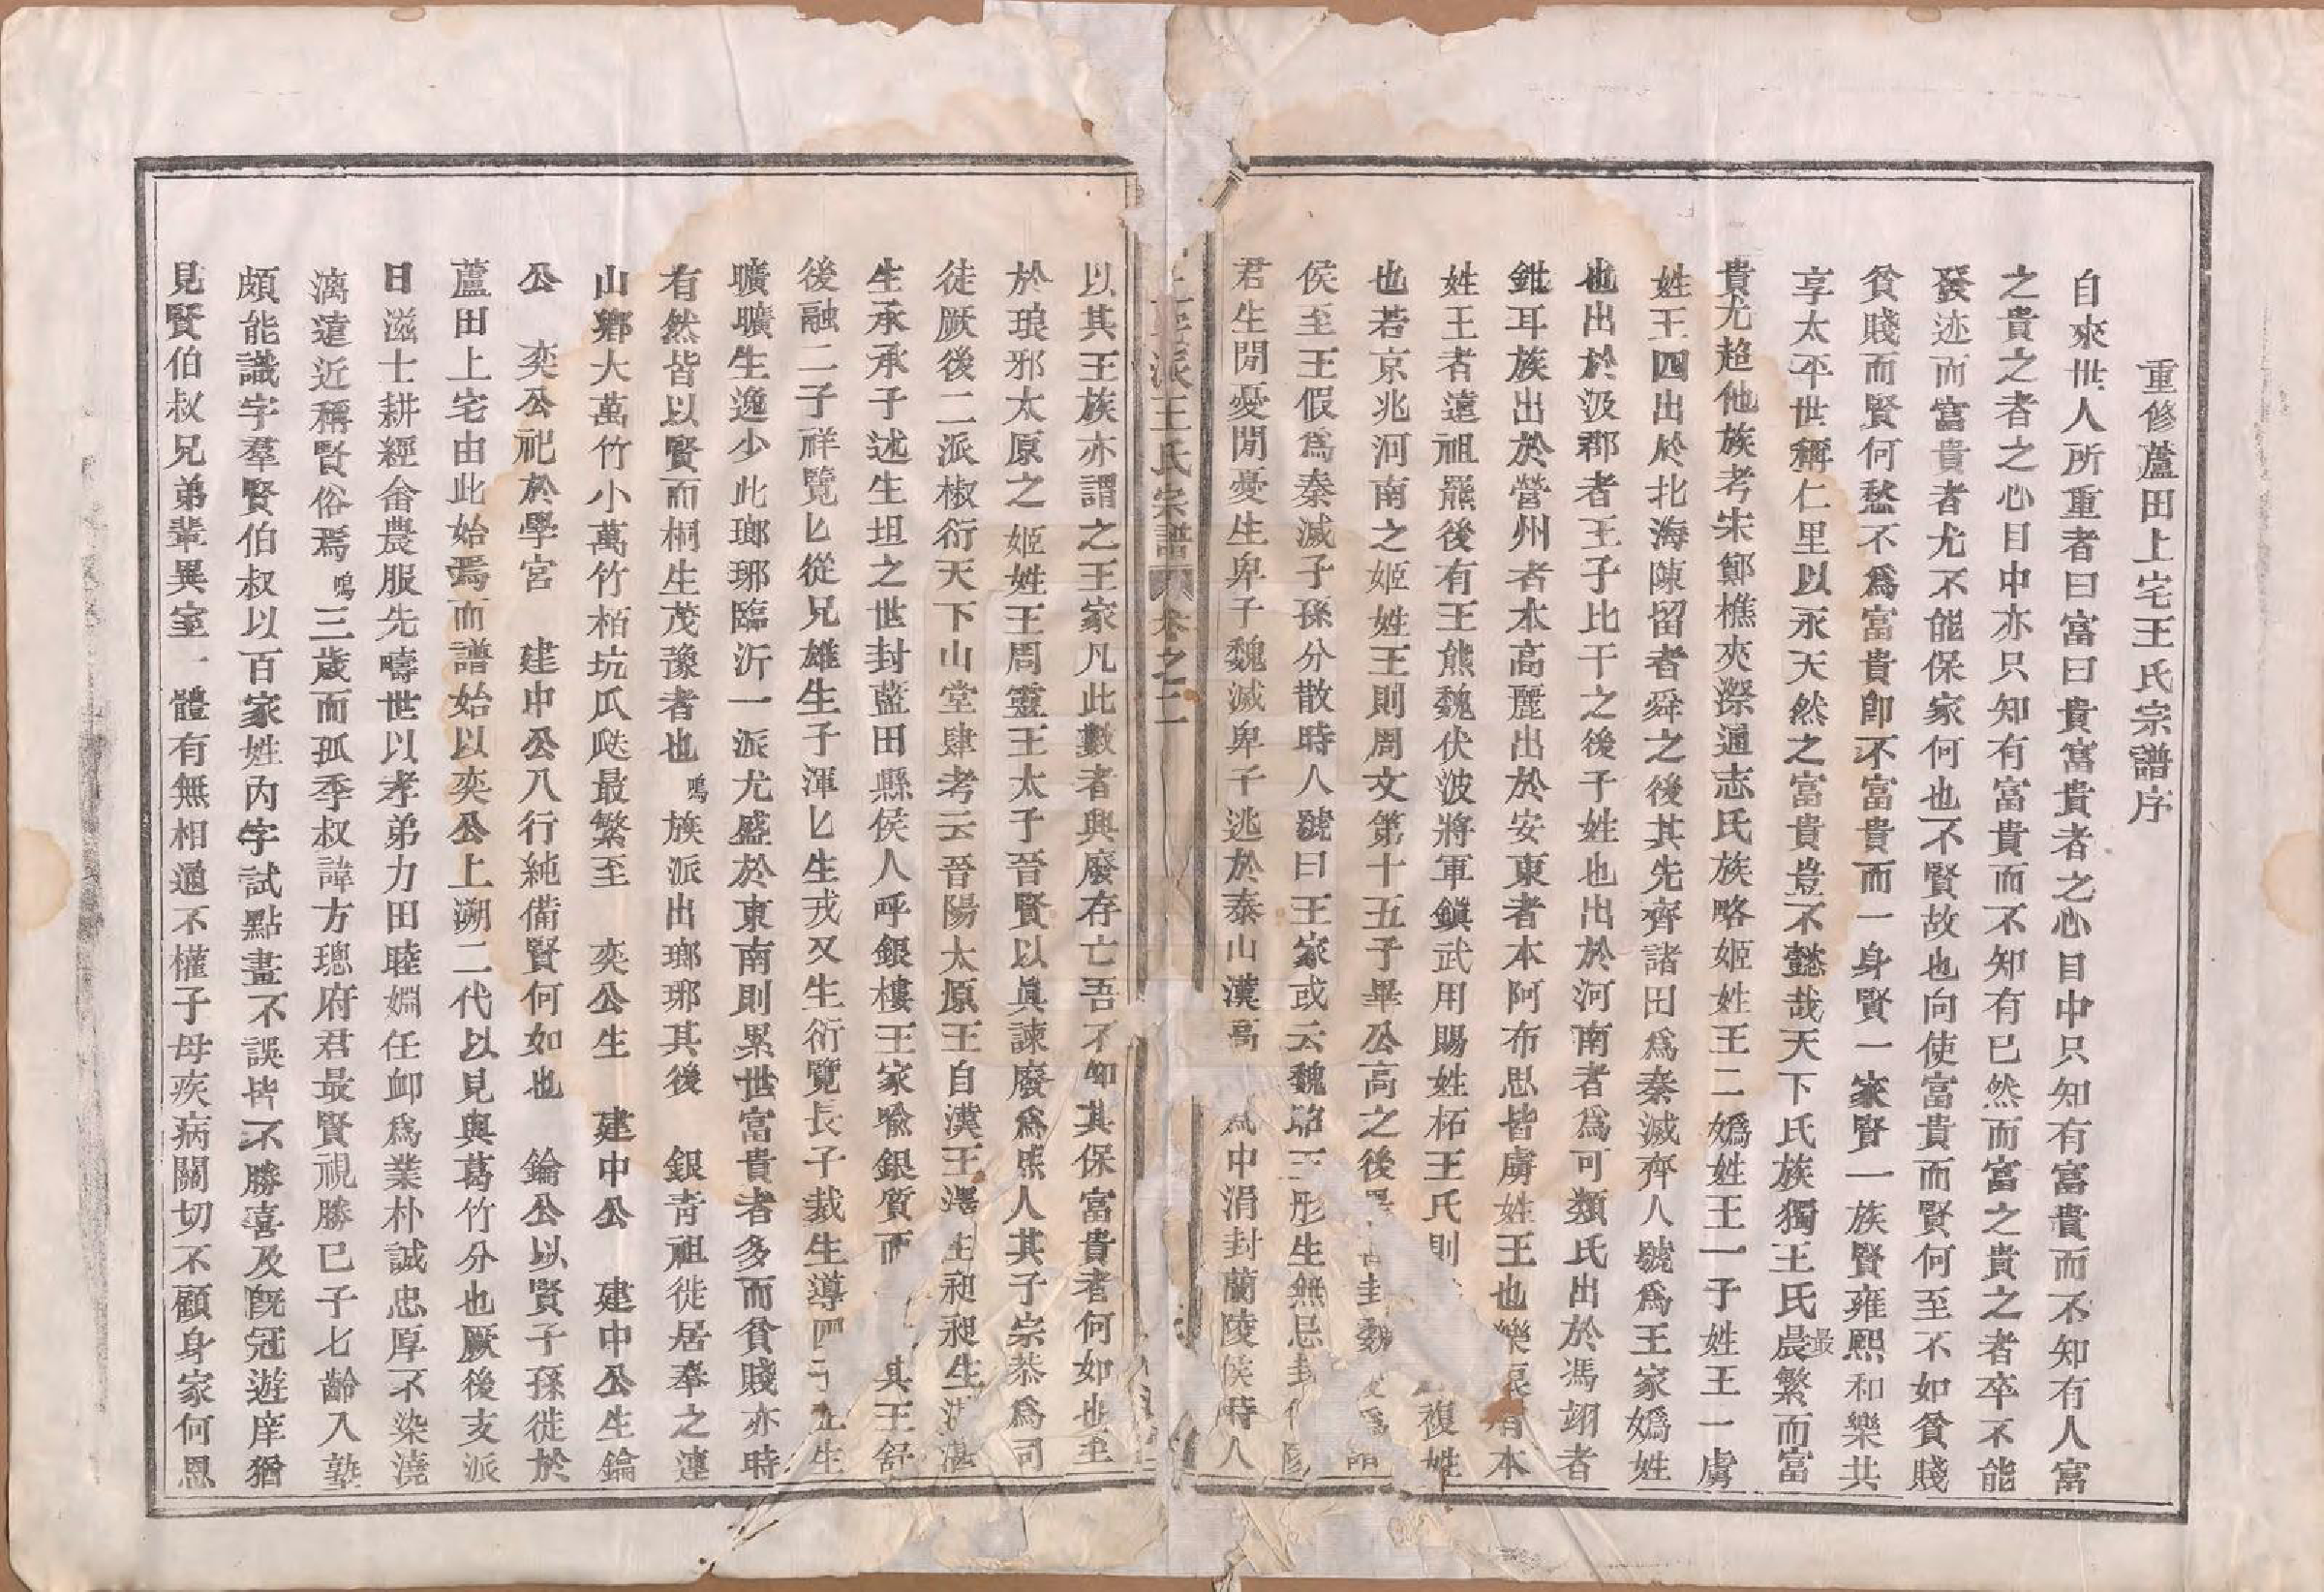 重修蘆田上宅王氏宗譜序
自來世人所重者曰富曰貴富貴者之心目中只知有富貴而不知有人富
之貴之者之心目中亦只知有富貴而不知有已然而富之貴之者卒不能
發迹而富貴者尤不能保家何也不賢故也向使富貴而賢何至不如貧賤
貧賤而賢何愁不爲富貴卽不富貴而一身賢一家賢一族賢雍熙和樂共
享太平世稱仁里以永天然之富貴豈不懿哉天下氏族獨王氏最繁而富
貴尤超他族考宋鄭樵夾漈通志氏族略姬姓王二嬀姓王一子姓王一虜
姓王四出於北海陳留者舜之後其先齊諸田爲秦滅齊人號爲王家嬀姓
也出於汲郡者王子比干之後子姓也出於河南者爲可類氏出於馮翊者
鉗耳族出於營州者本高麗出於安東者本阿布思皆虜姓王也樂 者本
姓王者遠祖羆後有王熊魏伏波將軍鎭武用賜姓柘王氏則 複姓
也若京兆河南之姬姓王則周文第十五子畢公高之後 封魏 爲諸
侯至王假爲秦滅子孫分散時人號曰王家或云魏昭王彤生無忌封信陵
君生閒憂閒憂生卑子魏滅卑子逃於泰山漢高 爲中涓封蘭陵侯時人
王氏宗譜 卷之二
以其王族亦謂之王家凡此數者興廢存亡吾不知其保富貴者何如也至
於琅邪太原之姬姓王周靈王太子晉賢以眞諫廢爲庶人其子宗恭爲司
徒厥後二派椒衍天下山堂肆考云晉陽太原王自漢王澤生昶昶生湛湛
生承承子述生坦之世封藍田縣侯人呼銀樓王家喩銀質而 其王舒
後融二子祥覽匕從兄雄生子渾匕生戎又生衍覽長子裁生導四子 生
曠曠生逸少此瑯琊臨沂一派尤盛於東南則累世富貴者多而貧賤亦時
有然皆以賢而桐生茂豫者也鳴族派出瑯琊其後 銀青祖徙居奉之連
山鄉大萬竹小萬竹栢坑瓜瓞最繁至 奕公生 建中公 建中公生錀
公 奕公祀於學宮 建中公八行純備賢何如也 錀公以賢子孫徙於
蘆田上宅由此始焉而譜始以奕公上溯二代以見與葛竹分也厥後支派
日滋士耕經畬農服先疇世以孝弟力田睦婣任卹爲業朴誠忠厚不染澆
漓遠近稱賢俗焉鳴三歲而孤季叔諱方璁府君最賢視勝已子七齡入塾
頗能識字羣賢伯叔以百家姓內字試點畫不誤皆不勝喜及旣冠遊庠猶
見賢伯叔兄弟輩異室一體有無相通不權子母疾病關切不顧身家何恩